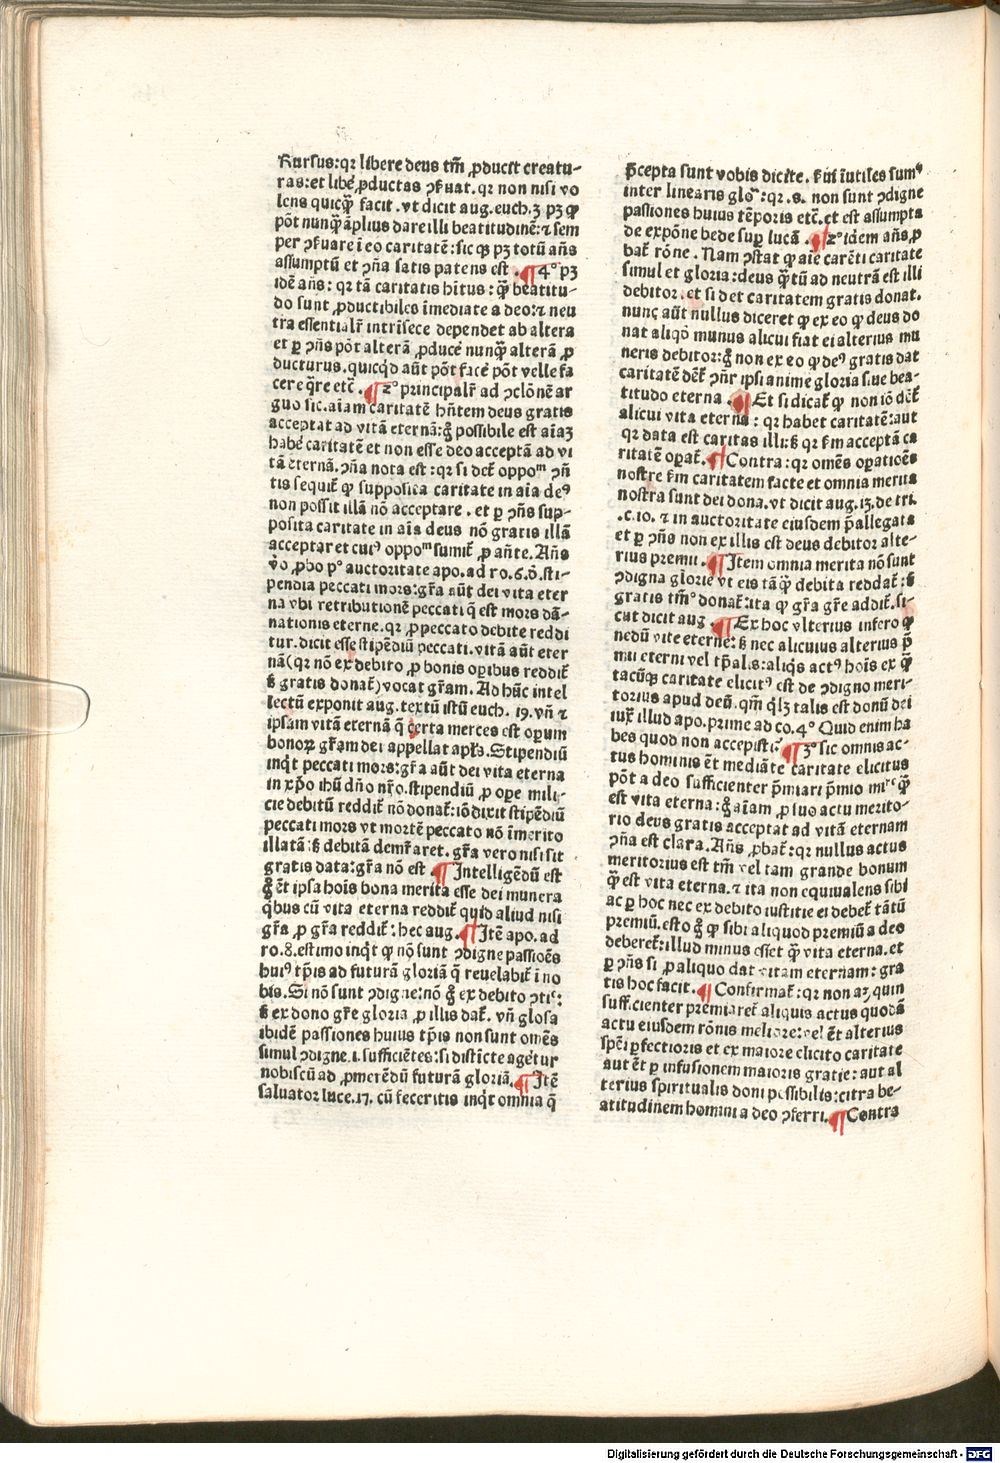 Rursus:qꝛ libere deus tm̄ ꝓducit creatu-
ras:et libe᷑ ꝓductas ↄ̨ẜuat. qꝛ non nisi vo
lens quicq̄ꝫ facit. vt dicit aug. euch. 3 pꝫ ꝙ
pōt nunq̄ꝫ āplius dare illi beatitudinē: ⁊ sem
per ↄẜuare ī eo caritatē: sic qꝫ pꝫ totū añs
assumptū et ↄña satis patens est . ¶ 4° pꝫ
idē añs: qꝛ tā caritatis hītus: q̄ꝫ beatitu-
do sunt ꝓductibiles īmediate a deo: ⁊ neu
tra essentialr̄ intrīsece dependet ab altera
et ꝑ ↄñs pōt alterā ꝓduce᷑ nunq̄ꝫ alterā ꝓ
ducturus. quicqd aūt pōt face᷑ pōt velle fa
cere q̄re etc̄ . ¶ 2° principalr̄ ad ↄclōnē ar
guo sic. aīam caritatē hñtem deus gratis
acceptat ad vitā eternā: g̊ possibile est aīaꝫ
habe᷑ caritatē et non esse deo acceptā ad vi
tā eternā. ↄña nota est: qꝛ si det᷑ oppoᵐ ↄñ
tis sequit᷑ ꝙ supposita caritate in aīa deꝰ
non possit illā nō acceptare . et ꝑ ↄñs sup-
posita caritate in aīa deus nō gratis illā
acceptaret cuiꝰ oppoᵐ sumit᷑ ꝓ añte. Añs
v̊o ꝓbo p° auctoritate apo. ad ro. 6. d̄. sti-
pendia peccati mors: gr̄a aūt dei vita eter
na vbi retributionē peccati q̄ est mors dā-
nationis eterne. qꝛ ꝓ peccato debite reddi
tur. dicit esse stipēdiū peccati. vitā aūt eter
nā (qꝛ nō ex debito ꝓ bonis oꝑibus reddit᷑
ẜ gratis donat᷑) vocat gr̄am. Ad hūc intel
lectū exponit aug. textū istū euch. 19. vñ ⁊
ipsam vitā eternā q̄ certa merces est oꝑum
bonoꝝ gr̄am dei appellat apl̄s. Stipendiū
inqt peccati mors: gr̄a aūt dei vita eterna
in xp̄o ihū dño nr̄o. stipendiū ꝓ oꝑe mili-
cie debitū reddit᷑ nō donat᷑: iō dixit stipēdiū
peccati mors vt mortē peccato nō īmerito
illatā: ẜ debitā demr̄aret. gr̄a vero nisi sit
gratis data: gr̄a nō est . ¶ Intelligēdū est
g̊ ēt ipsa hoīs bona merita esse dei munera
qbus cū vita eterna reddit᷑ quid aliud nisi
gr̄a ꝓ gr̄a reddit᷑: hec aug. ¶ Itē apo. ad
ro. 8. estimo inqt ꝙ nō sunt ↄdigne passioēs
huiꝰ tp̄is ad futurā gloriā q̄ reuelabit᷑ ī no
bis. Si nō sunt ↄdigne: nō g̊ ex debito
ẜ ex dono gr̄e gloria ꝓ illis dat᷑. vñ glosa
ibidē passiones huius tp̄is non sunt omēs
simul ↄdigne .i. sufficiētes: si distīcte agetur
nobiscū ad ꝓmerēdū futurā gloriā. ¶ Itē
saluator luce. 17. cū feceritis inqt omnia q̄
p̄cepta sunt vobis dicite. ẜui īutiles sumꝰ
inter linearis glo᷑: qꝛ .s. non sunt ↄdigne
passiones huius tēporis etc̄. et est assumpta
de expōne bede suꝑ lucā . ¶ 2° idem añs ꝓ
bat᷑ rōne . Nam ↄstat ꝙ aīe carēti caritate
simul et gloria: deus q̄ꝫtū ad neutrā est illi
debitor. et si det caritatem gratis donat.
nunc aūt nullus diceret ꝙ ex eo ꝙ deus do
nat aliqd munus alicui fiat ei alterius mu
neris debitor: g̊ non ex eo ꝙ deꝰ gratis dat
caritatē det᷑ ↄñr ipsi anime gloria siue bea-
titudo eterna . ¶ Et si dicat᷑ ꝙ non iō det᷑
alicui vita eterna : qꝛ habet caritatē: aut
qꝛ data est caritas illi: ẜ qꝛ ẜm acceptā ca
ritatē oꝑat᷑. ¶ Contra: qꝛ omēs oꝑatioēs
nostre ẜm caritatem facte et omnia merita
nostra sunt dei dona. vt dicit aug. 13. de tri.
.c. 10. ⁊ in auctoritate eiusdem p̄allegata
et ꝑ ↄñs non ex illis est deus debitor alte-
rius premii . ¶ Item omnia merita nō sunt
ↄdigna glorie vt eis tāq̄ꝫ debita reddat᷑: ẜ
gratis tm̄° donat᷑: ita ꝙ gr̄a gr̄e addit᷑. si-
cut dicit aug . ¶ Ex hoc vlterius infero ꝙ
nedū vite eterne: ẜ nec alicuius alterius p̄
mii eterni vel tp̄alis: aliqs actꝰ hoīs ex q̄ꝫ
tacūqꝫ caritate elicitꝰ est de ↄdigno meri-
torius apud deū. qm̄ qlꝫ talis est donū dei
iux᷑ illud apo. prime ad co. 4° Quid enim ha
bes quod non accepisti: ¶ 3° sic omnis ac-
tus hominis ēt mediāte caritate elicitus
pōt a deo sufficienter p̄miari p̄mio q̄ꝫ
est vita eterna: g̊ aīam ꝓ suo actu merito-
rio deus gratis acceptat ad vitā eternam
ↄña est clara. Añs ꝓbat᷑: qꝛ nullus actus
meritorius est tm̄ vel tam grande bonum
q̄ꝫ est vita eterna. ⁊ ita non equiualens sibi
ac ꝑ hoc nec ex debito iustitie ei debet᷑ tātū
premiū. esto g̊ ꝙ sibi aliquod premiū a deo
deberet᷑: illud minus esset q̄ꝫ vita eterna. et
ꝑ ↄñs si ꝓ aliquo dat vitam eternam: gra
tis hoc facit. ¶ Confirmat᷑: qꝛ non aꝫ quin
sufficienter premiaret᷑ aliquis actus quodā
actu eiusdem rōnis meliore: vel ēt alterius
spēi ꝑfectioris et ex maiore elicito caritate
aut ēt ꝑ infusionem maioris gratie: aut al
terius spiritualis doni possibilis: citra be-
atitudinem homini a deo ↄferri. ¶ Contra
Digitalisierung gefördert durch die Deutsche Forschungsgemeinschaft - DFG